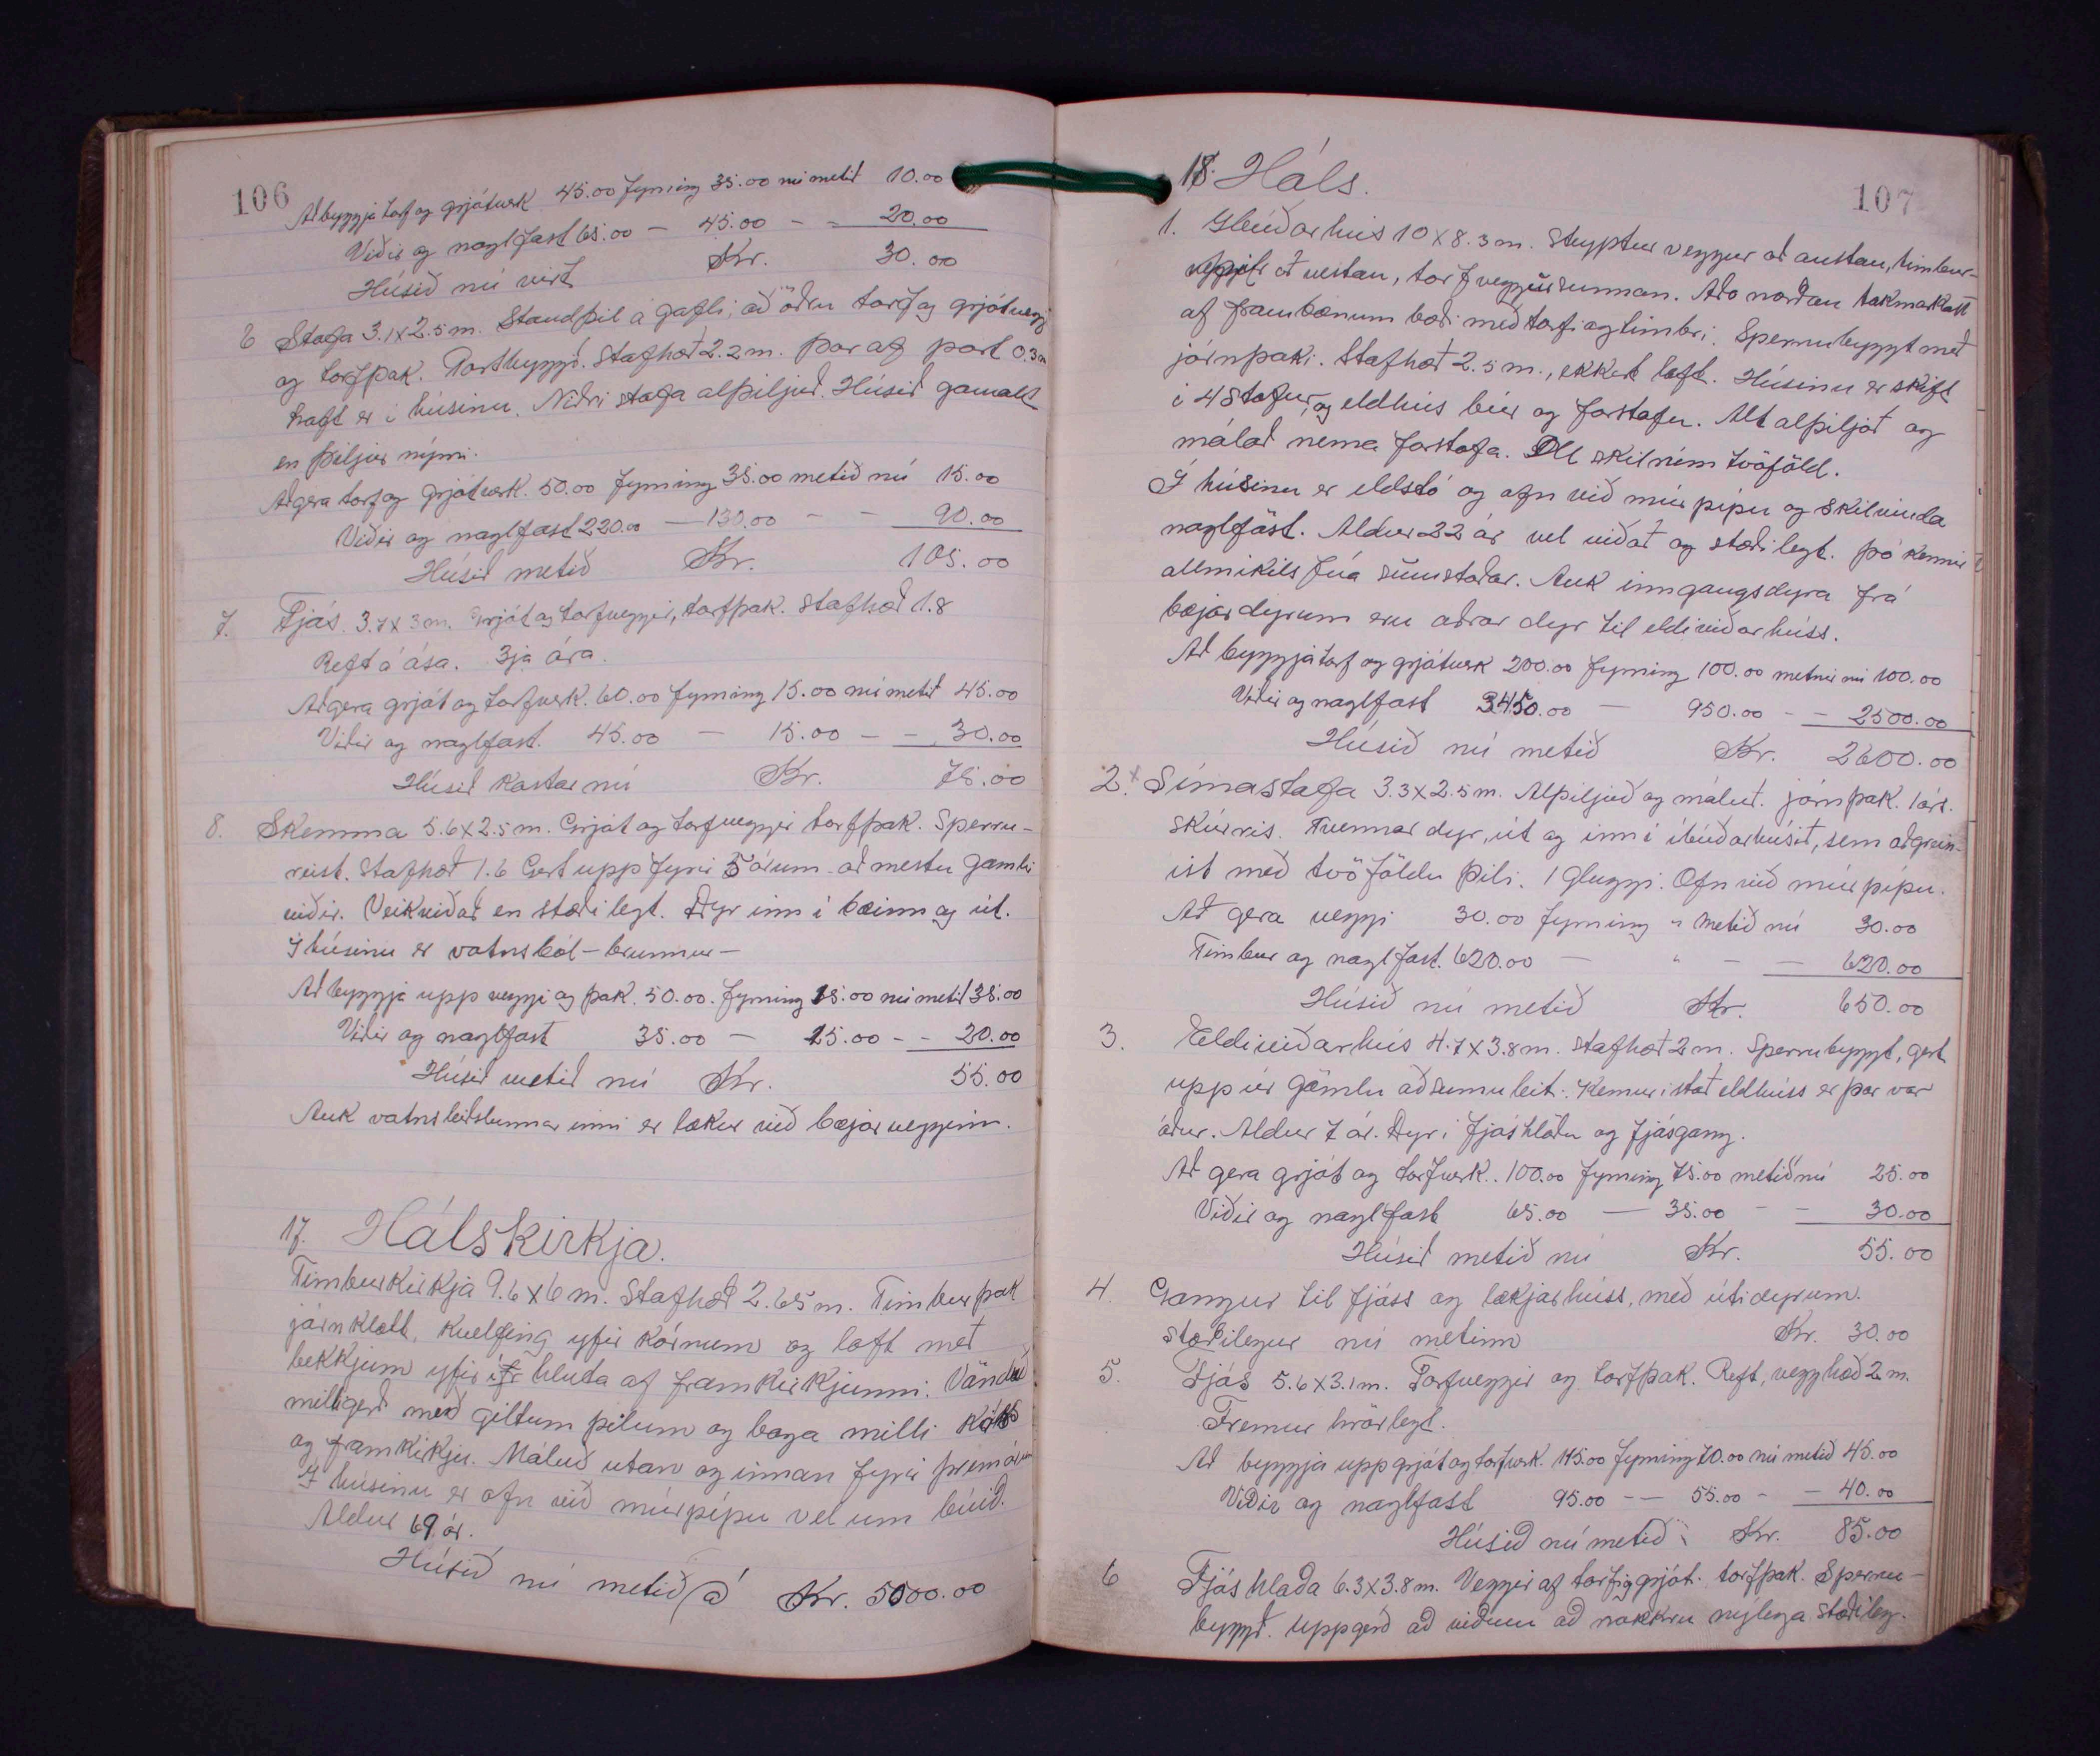 106
Að byggja torf og grjótverk 45.00 fyrning 35.00 nú metið 10.00
Viðir og naglfast 65.00 — 45.00 - - 20.00
Húsið nú virt Kr. 30.00
6 Stofa 3.1x2.5m. Standþil á gafli, að öðru torf og grjótveggir
og torfþak. Portbyggð. Stafhæð 2.2m. Þar af port 0.3m
Loft er í húsinu. Niðri stofa alþiljuð. Húsið gamalt
en þiljur nýrri.
Að gera torf og grjótverk. 50.00 fyrning 35.00 metið nú 15.00
Viðir og naglfast 220.00 — 130.00 - - 90.00
Húsið metið Kr. 105.00
7. Fjós. 3.7x3m. Grjót og torfveggir, torfþak. Stafhæð 1.8
Reft á ása. 3ja ára.
Að gera grjót og torfverk. 60.00 fyrning 15.00 nú metið 45.00
Viðir og naglfast. 45.00 — 15.00 - - 30.00
Húsið kostar nú Kr. 75.00
8. Skemma 5.6x2.5m. Grjót og torfveggir torfþak. Sperru-
reist. Stafhæð 1.6 Gert upp fyrir 5 árum - að mestu gamlir
viðir. Veikviðað en stæðilegt. Dyr inn í bæinn og út.
Í húsinu er vatnsból - brunnur -
Að byggja upp veggi og þak. 50.00. fyrning 15.00 nú metið 35.00
Viðir og naglfast 35.00 — 15.00 - - 20.00
Húsið metið nú Kr. 55.00
Auk vatnsleiðslunnar inni er lækur við bæjarvegginn.
17. Hálskirkja.
Timburkirkja 9.6x6m. Stafhæð 2.65m. Timburþak
járnklætt, kvelfing yfir kórnum og loft með
bekkjum yfir hluta af framkirkjunni. Vönduð
milligerð með giltum pílum og boga milli kórs
og framkirkju. Máluð utan og innan fyrir þrem árum
Í húsinu er ofn við múrpípu vel um búið.
Aldur 69 ár.
Húsið nú metið á Kr. 5000.00
107
18. Háls.
1. Íbúðarhús 10x8.3m. Steyptur veggur að austan, timbur-
að vestan, torfveggur sunnan. Að norðan takmarkast
af frambænum bæði með torfi og timbri. Sperrubyggt með
járnþaki. Stafhæð 2.5m., ekkert loft. Húsinu er skift
í 4 stofur, og eldhús búr og forstofu. Alt alþiljað og
málað nema forstofa. Öll skilrúm tvöföld.
Í húsinu er eldstó og ofn við múrpípu og skilvinda
naglföst. Aldur 22 ár vel viðað og stæðilegt. Þó kennir
allmikils fúa sumstaðar. Auk inngangsdyra frá
bæjardyrum eru aðrar dyr til eldiviðarhúss.
Að byggja torf og grjótverk 200.00 fyrning 100.00 metnir nú 100.00
Viðir og naglfast 3450.00 — 950.00 - - 2500.00
Húsið nú metið Kr. 2600.00
2. x Símastofa 3.3x2.5m. Alþiljuð og máluð. járnþak. 1 árs.
Skúrris. Tvennar dyr, út og inn í íbúðarhúsið, sem aðgrein-
ist með tvöföldu þili. 1 gluggi. Ofn við múrpípu.
Að gera veggi 30.00 fyrning " metið nú 30.00
Timbur og naglfast. 620.00 — " - - 620.00
Húsið nú metið Kr. 650.00
3. Eldiviðarhús 4.7x3.8m. stafhæð 2m. Sperrubyggt, gert
upp úr gömlu að sumu leiti. Kemur í stað eldhúss er þar var
áður. Aldur 7 ár. Dyr í fjóshlöðu og fjósgang.
Að gera grjót og torfverk. 100.00 fyrning 75.00 metið nú 25.00
Viðir og naglfast 65.00 — 35.00 - - 30.00
Húsið metið nú Kr. 55.00
4. Gangur til fjóss og lækjarhúss, með útidyrum.
stæðilegur nú metinn Kr. 30.00
5. Fjós 5.6x3.1m. Torfveggir og torfþak. Reft, vegghæð 2m.
Fremur hrörlegt.
Að byggja upp grjót og torfverk. 115.00 fyrning 70.00 nú metið 45.00
Viðir og naglfast 95.00 -- 55.00 - - 40.00
Húsið nú metið Kr. 85.00
6 Fjóshlaða 6.3x3.8m. Veggir af torfi og grjóti. torfþak. Sperru-
byggð. uppgerð að viðum að nokkru nýlega stæðileg.